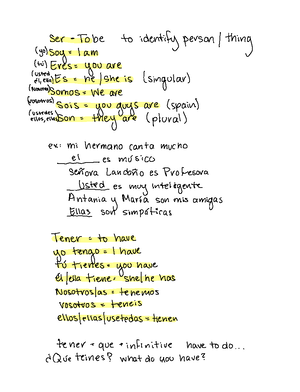 Ser - To be to identify person / thing
(yo) Soy = I am
(tú) Eres = you are
(usted, él, ella) Es = he/she is (singular)
(nosotros) Somos = We are
(vosotros) Sois = you guys are (spain)
(ustedes, ellos, ellas) Son = they are (plural)
ex: mi hermano canta mucho
él es músico
Señora Londoño es Profesora
Usted es muy inteligente
Antania y María son mis amigas
Ellas son simpáticas
Tener = to have
yo tengo = I have
tú tienes = you have
él/ella tiene = she/he has
Nosotros/as = tenemos
vosotros = teneis
ellos/ellas/ustedas = tienen
tener + que + infinitive have to do...
¿Que teines? what do you have?